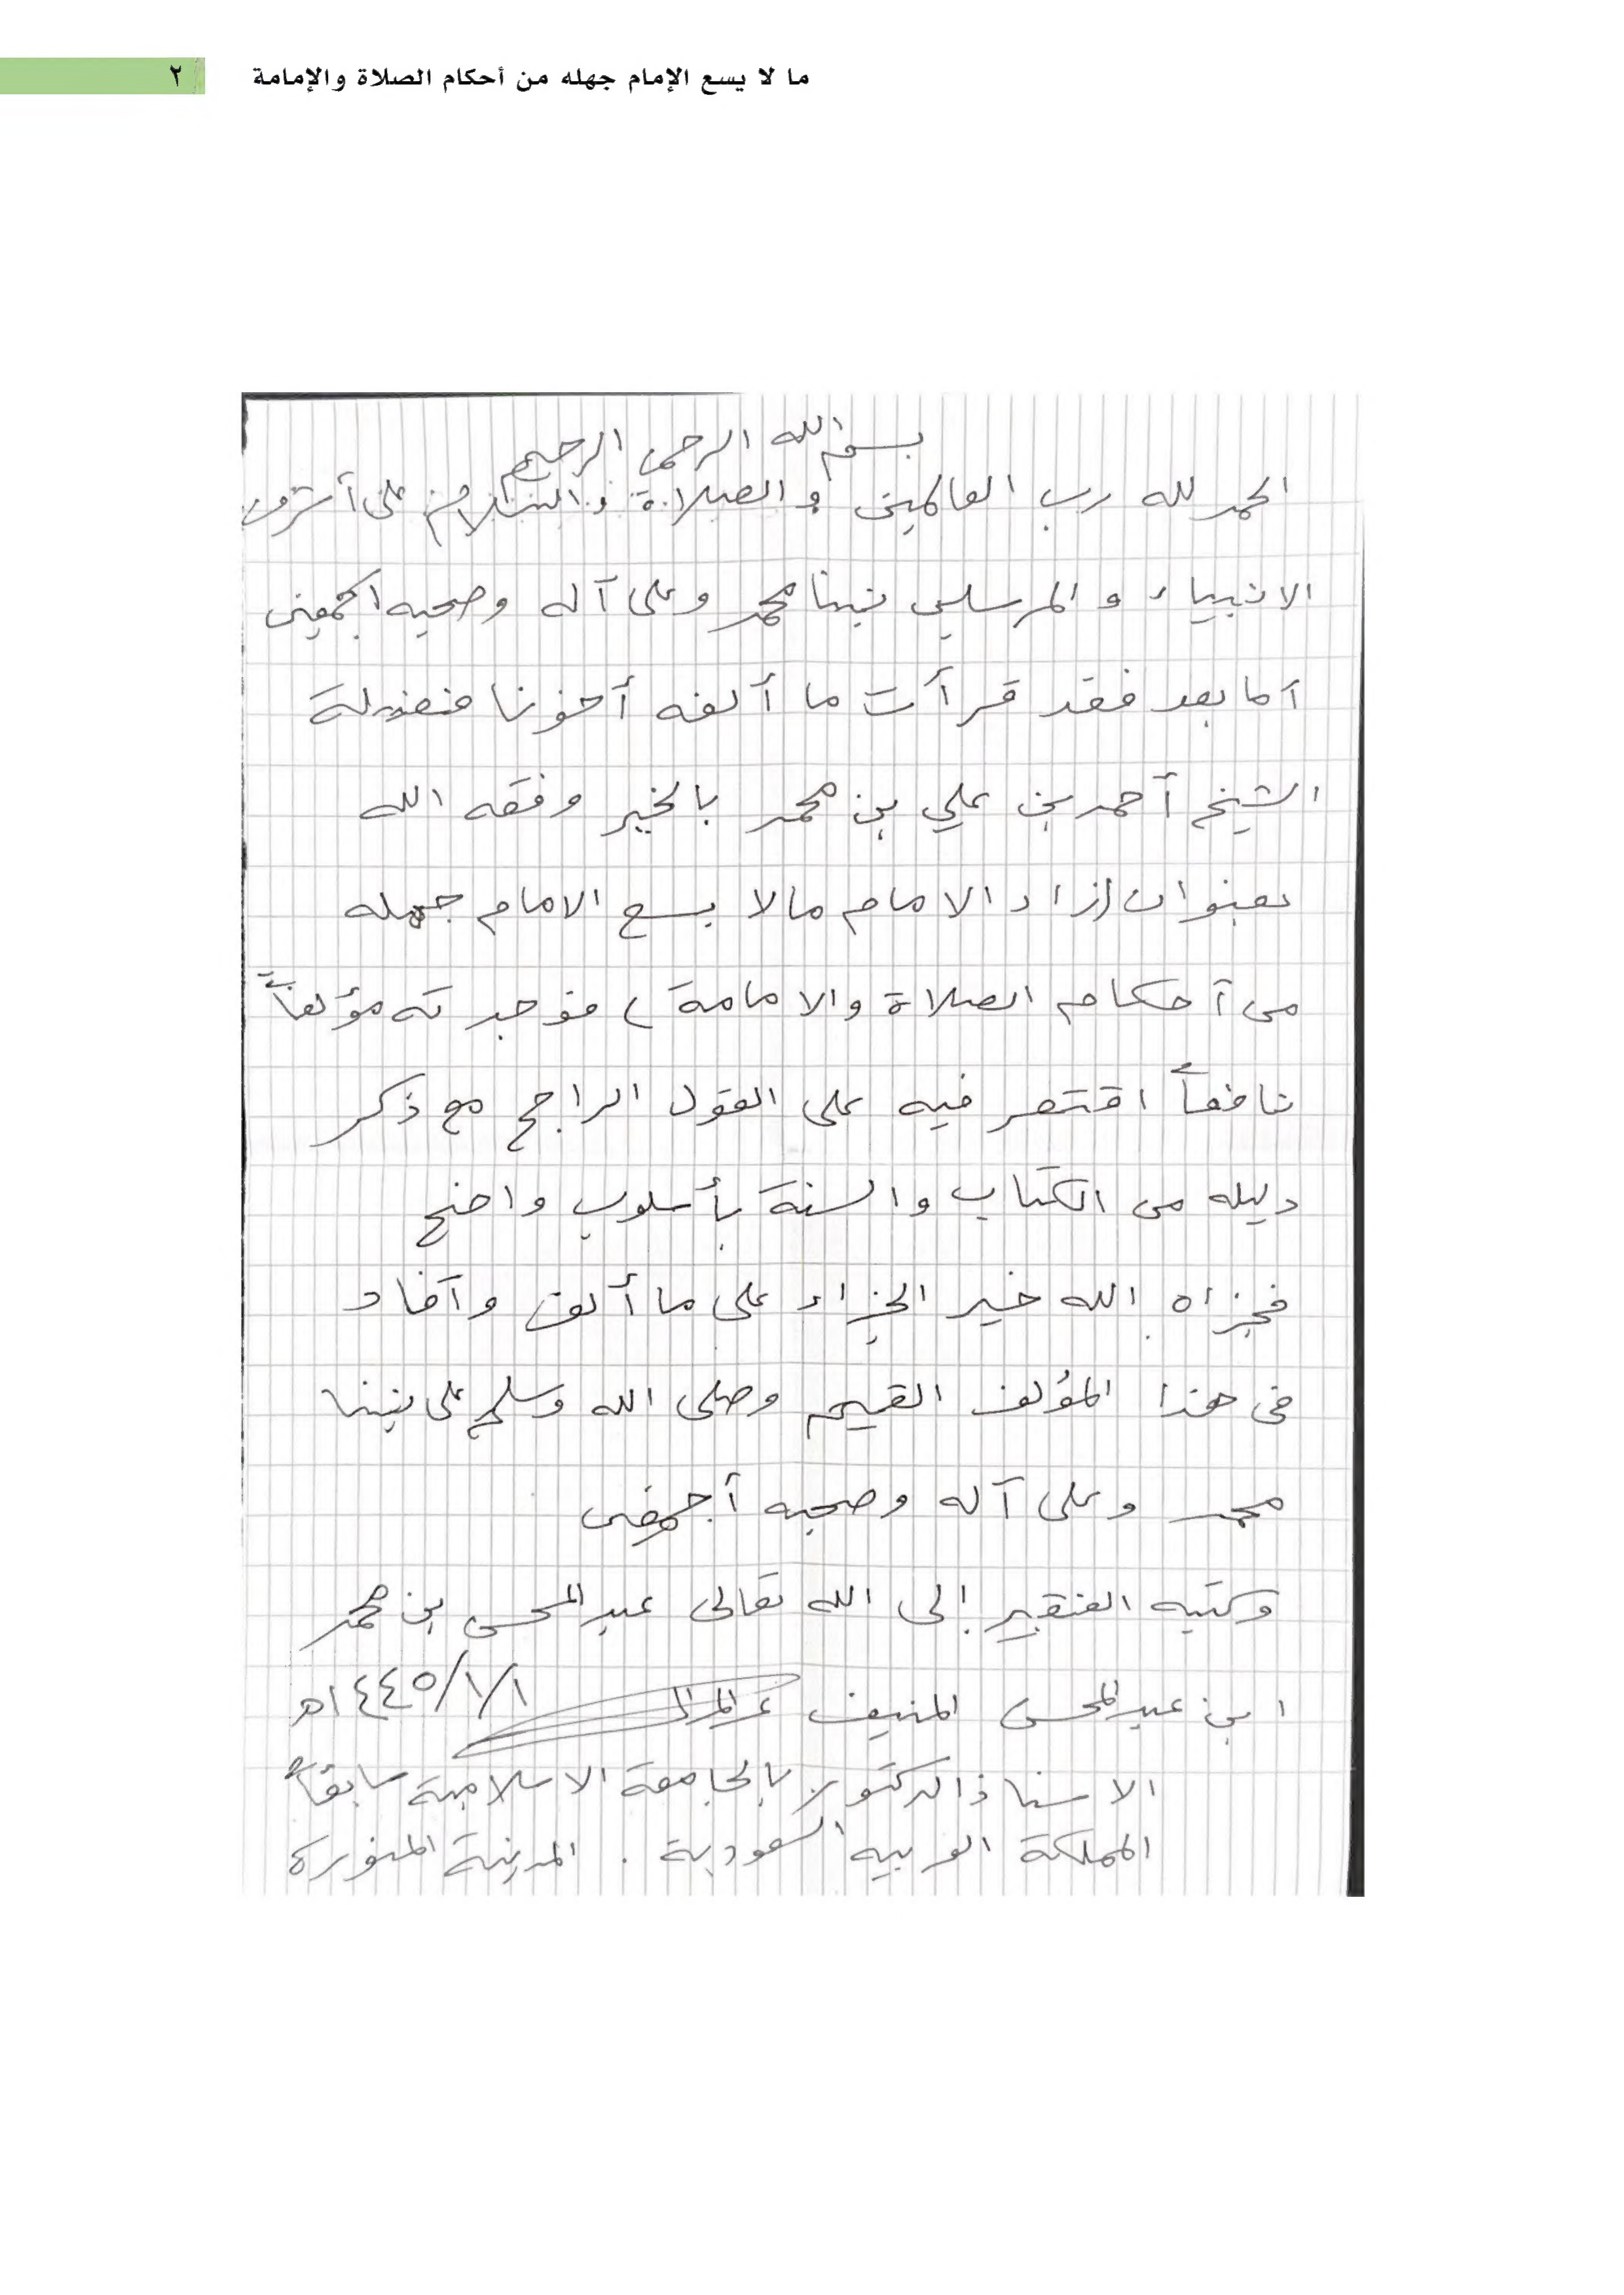 ما لا يسع الإمام جهله من أحكام الصلاة والإمامة ٢
بسم الله الرحمن الرحيم
الحمد لله رب العالمين والصلاة والسلام على أشرف
الانبياء والمرسلين نبينا محمد وعلى آله وصحبه اجمعين
أما بعد فقد قرأت ما ألفه أخونا فضيلة
الشيخ أحمد بن علي بن محمد بالخير وفقه الله
بعنوان (زاد الامام مالا يسع الامام جهله
من أحكام الصلاة والامامة) فوجدته مؤلفاً
نافعاً اقتصر فيه على القول الراجح مع ذكر
دليله من الكتاب والسنة بأسلوب واضح
فجزاه الله خير الجزاء على ما ألف وأفاد
في هذا المؤلف القيم وصلى الله وسلم على نبينا
محمد وعلى آله وصحبه أجمعين
وكتبه الفقير إلى الله تعالى عبد المحسن بن محمد
ابن عبد المحسن المنيف ١٤٤٥/١/١هـ
الاستاذ الدكتور بالجامعة الاسلامية سابقاً
المملكة العربيه السعودية . المدينة المنورة